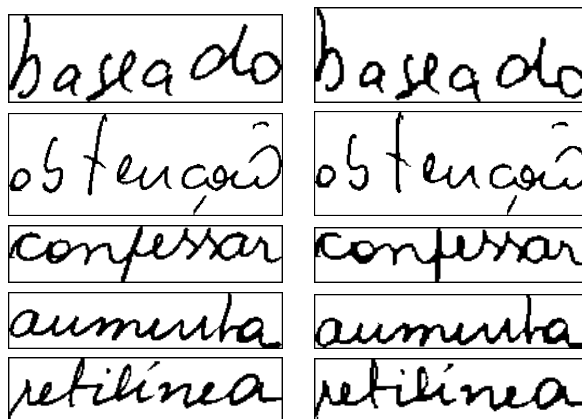 baseado baseado
obtenção obtenção
confessar confessar
aumenta aumenta
retilínea retilínea